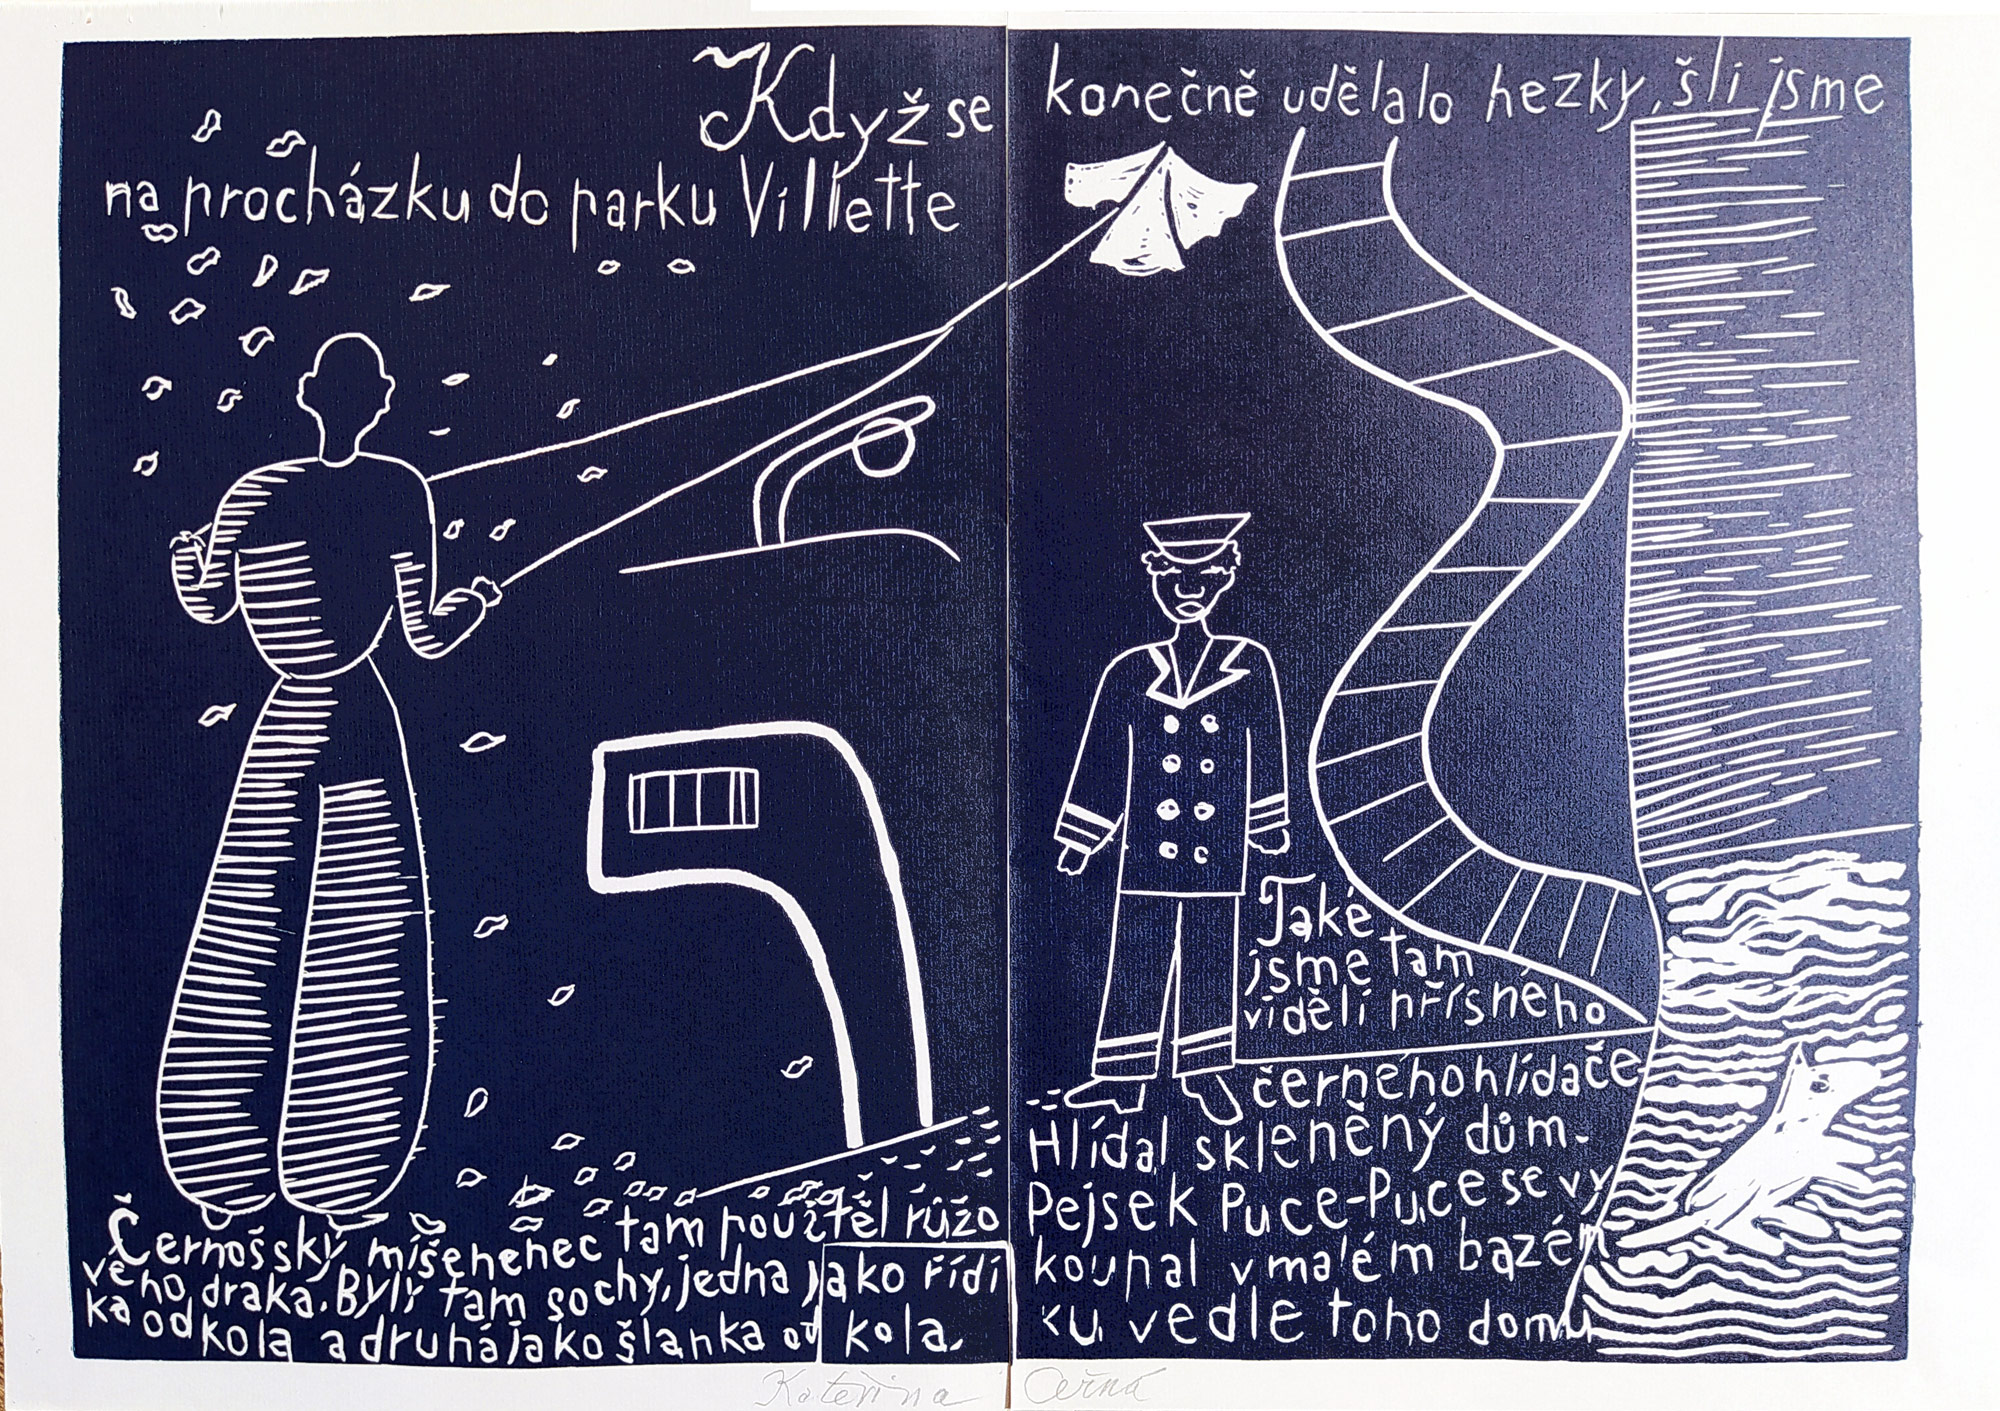 Když se konečně udělalo hezky, šli jsme
na procházku do parku Villette
Také
jsme tam
viděli přísného
černého hlídače
Hlídal skleněný dům.
Pejsek Puce-Puce se vy
koupal v malém bazén
ku vedle toho domu
Černošský míšenenec tam pouštěl růžo
vého draka. Byly tam sochy, jedna jako řídí
ka od kola a druhá jako šlapka od kola.
Kateřina Černá